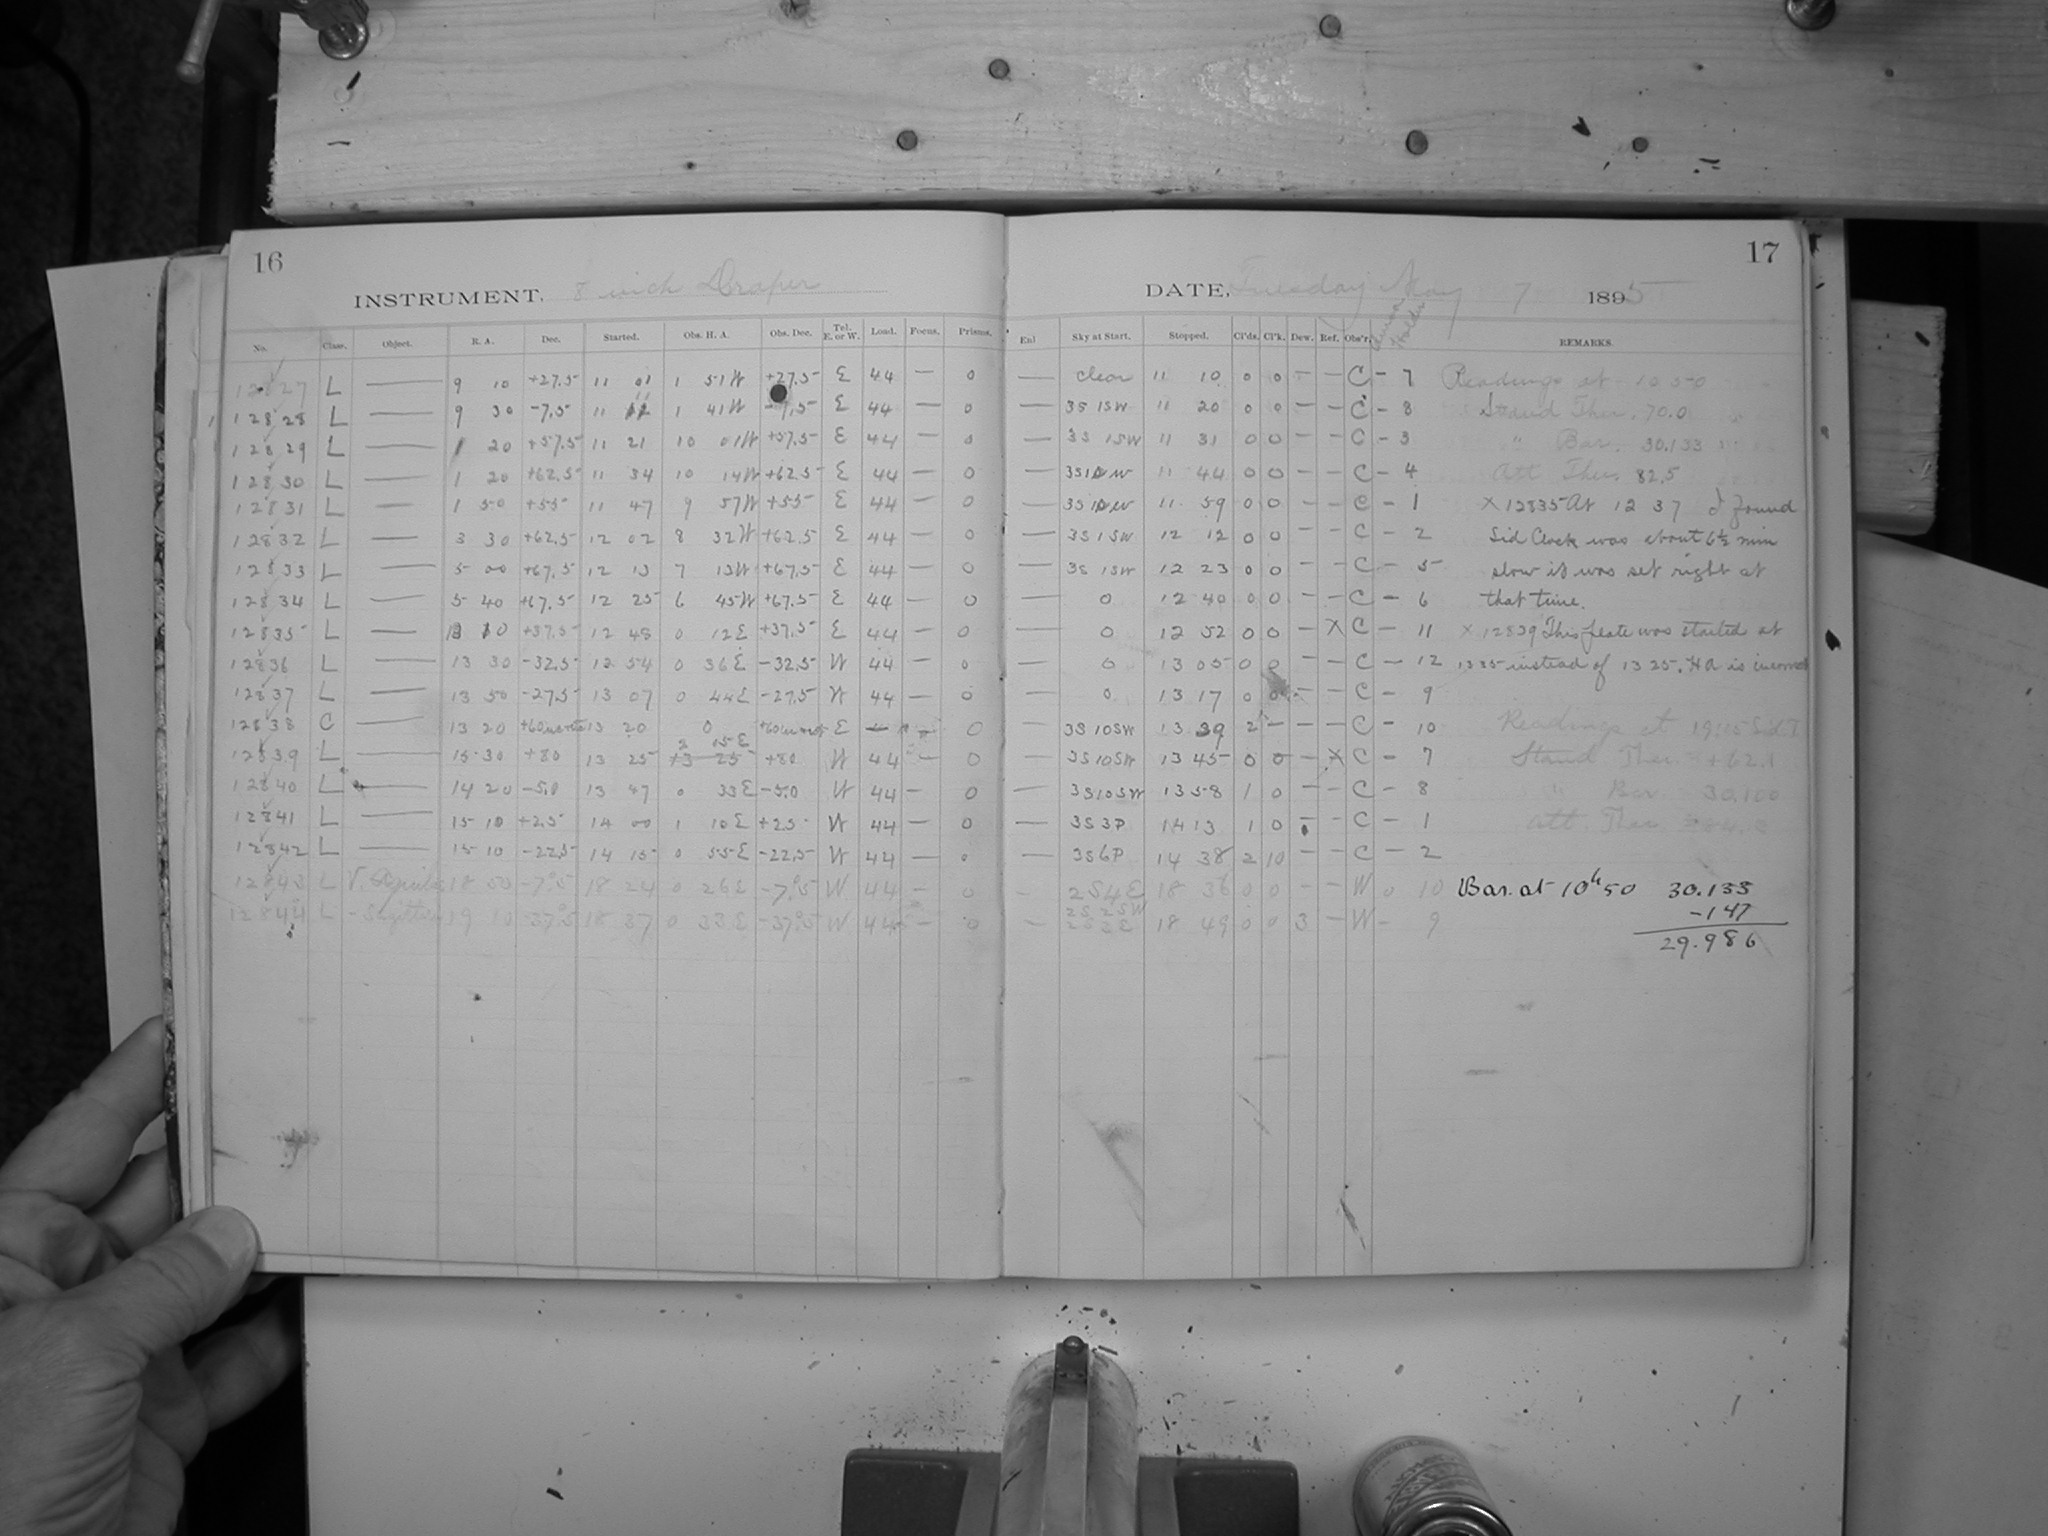 16
INSTRUMENT, 8 inch Draper
No. Class. Object. R. A. Dec. Started. Obs. H. A. Obs. Dec. Tel. E. or W. Load. Focus. Prisms.
12827 L — 9 10 +27.5 11 01 1 51W +27.5 E 44 — 0
12828 L — 9 30 -7.5 11 12 1 41W -7.5 E 44 — 0
12829 L — 1 20 +57.5 11 21 10 01W +57.5 E 44 — 0
12830 L — 1 20 +62.5 11 34 10 14W +62.5 E 44 — 0
12831 L — 1 50 +55 11 47 9 57W +55 E 44 — 0
12832 L — 3 30 +62.5 12 02 8 32W +62.5 E 44 — 0
12833 L — 5 00 +67.5 12 13 7 13W +67.5 E 44 — 0
12834 L — 5 40 +67.5 12 25 6 45W +67.5 E 44 — 0
12835 L — 13 10 +37.5 12 48 0 12E +37.5 E 44 — 0
12836 L — 13 30 -32.5 12 54 0 36E -32.5 W 44 — 0
12837 L — 13 50 -27.5 13 07 0 44E -27.5 W 44 — 0
12838 C — 13 20 +60 13 20 0 +60 E — — 0
12839 L — 15 30 +80 13 25 2 15E 13 25 +80 W 44 — 0
12840 L — 14 20 -5.0 13 47 0 33E -5.0 W 44 — 0
12841 L — 15 10 +2.5 14 00 1 10E +2.5 W 44 — 0
12842 L — 15 10 -22.5 14 15 0 55E -22.5 W 44 — 0
12843 L V. Aquilae 18 50 -7°5 18 24 0 26E -7°5 W 44 — 0
12844 L - Sagittarii 19 10 -37°5 18 37 0 33E -37°5 W 44 — 0
17
DATE, Tuesday May 7 1895
Enl Sky at Start. Stopped. Cl'ds. Cl'k. Dew. Ref. Obs'r. Holder REMARKS.
— clear 11 10 0 0 — — C - 7 Readings at 10 50
— 3S 1SW 11 20 0 0 — — C - 8 Stand Ther. 70.0
— 3S 1SW 11 31 0 0 — — C - 3 " Bar. 30.133
— 3S1SW 11 44 0 0 — — C - 4 Att Ther. 82.5
— 3S1SW 11 59 0 0 — — C - 1 X 12835 At 12 37 I found
— 3S1SW 12 12 0 0 — — C - 2 Sid Clock was about 6½ min
— 3S 1SW 12 23 0 0 — — C - 5 slow it was set right at
— 0 12 40 0 0 — — C - 6 that time.
— 0 12 52 0 0 — X C - 11 X 12839 This plate was started at
— 0 13 05 0 0 — — C - 12 1335 instead of 13 25. HA is incorrect
— 0 13 17 0 0 — — C - 9
3S 10SW 13 39 2 — — — C - 10 Readings at 19:15 Sid. T
— 3S10SW 13 45 0 0 — X C - 7 Stand Ther. +62.1
— 3S10SW 13 58 1 0 — — C - 8 " Bar 30.100
— 3S3P 14 13 1 0 — — C - 1 Att Ther.
— 3S6P 14 38 2 10 — — C - 2
— 2S4E 18 36 0 0 — — W 0 10 Bar. at 10h 50 30.133
2S 2SW -147
— 2S2E 18 49 0 0 3 — W - 9
29.986